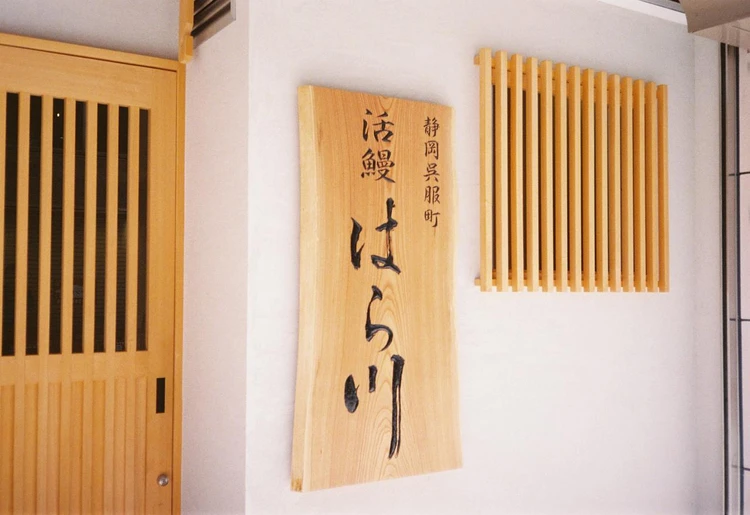 静岡呉服町
活鰻
はら川